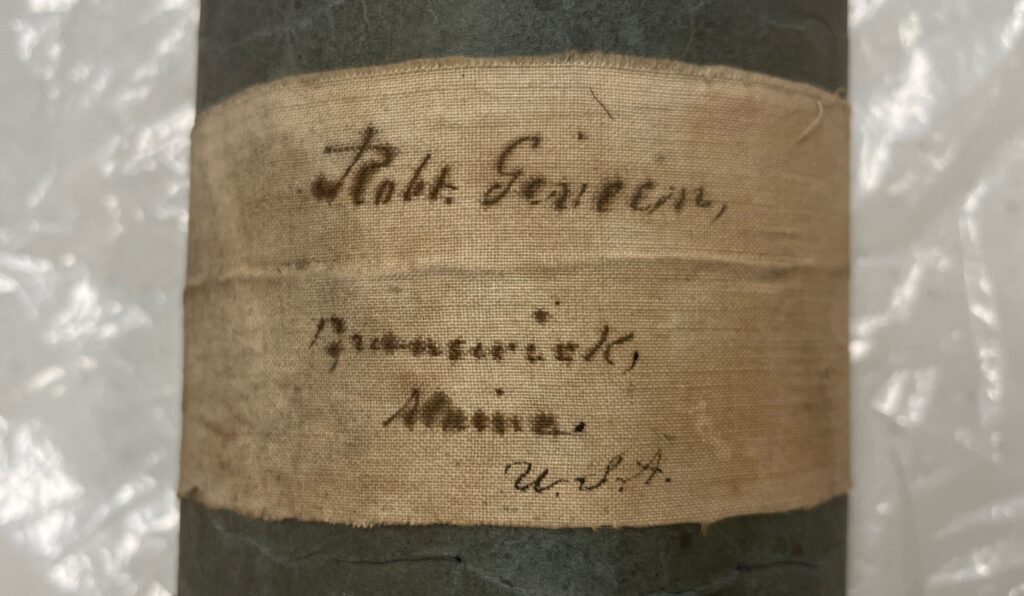 Robt. Giveen,
Brunswick,
Maine.
U.S.A.